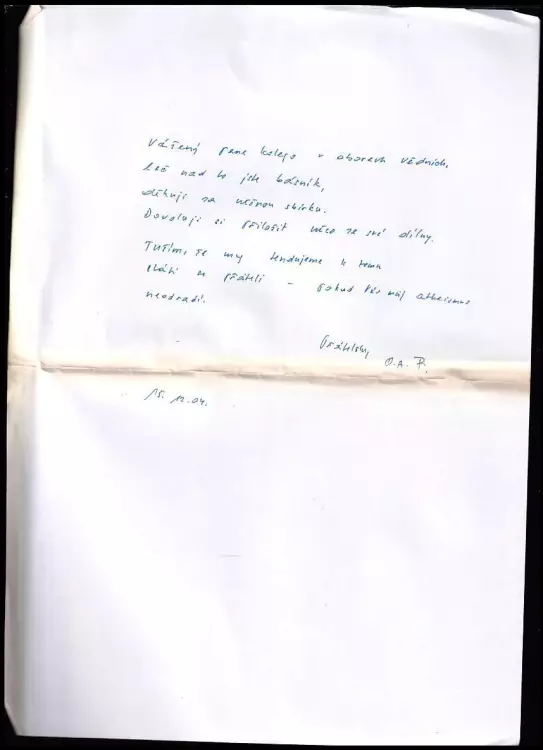 Vážený pane kolego v oborech vědních,
leč nad to jste básník,
děkuji za věcnou sbírku.
Dovoluji si přiložit něco ze své dílny.
Tuším, že my tendujeme k tomu
státi se přáteli – pokud Vás můj atheismus
neodradí.
Přátelsky,
O.A.F.
15. 12. 04.